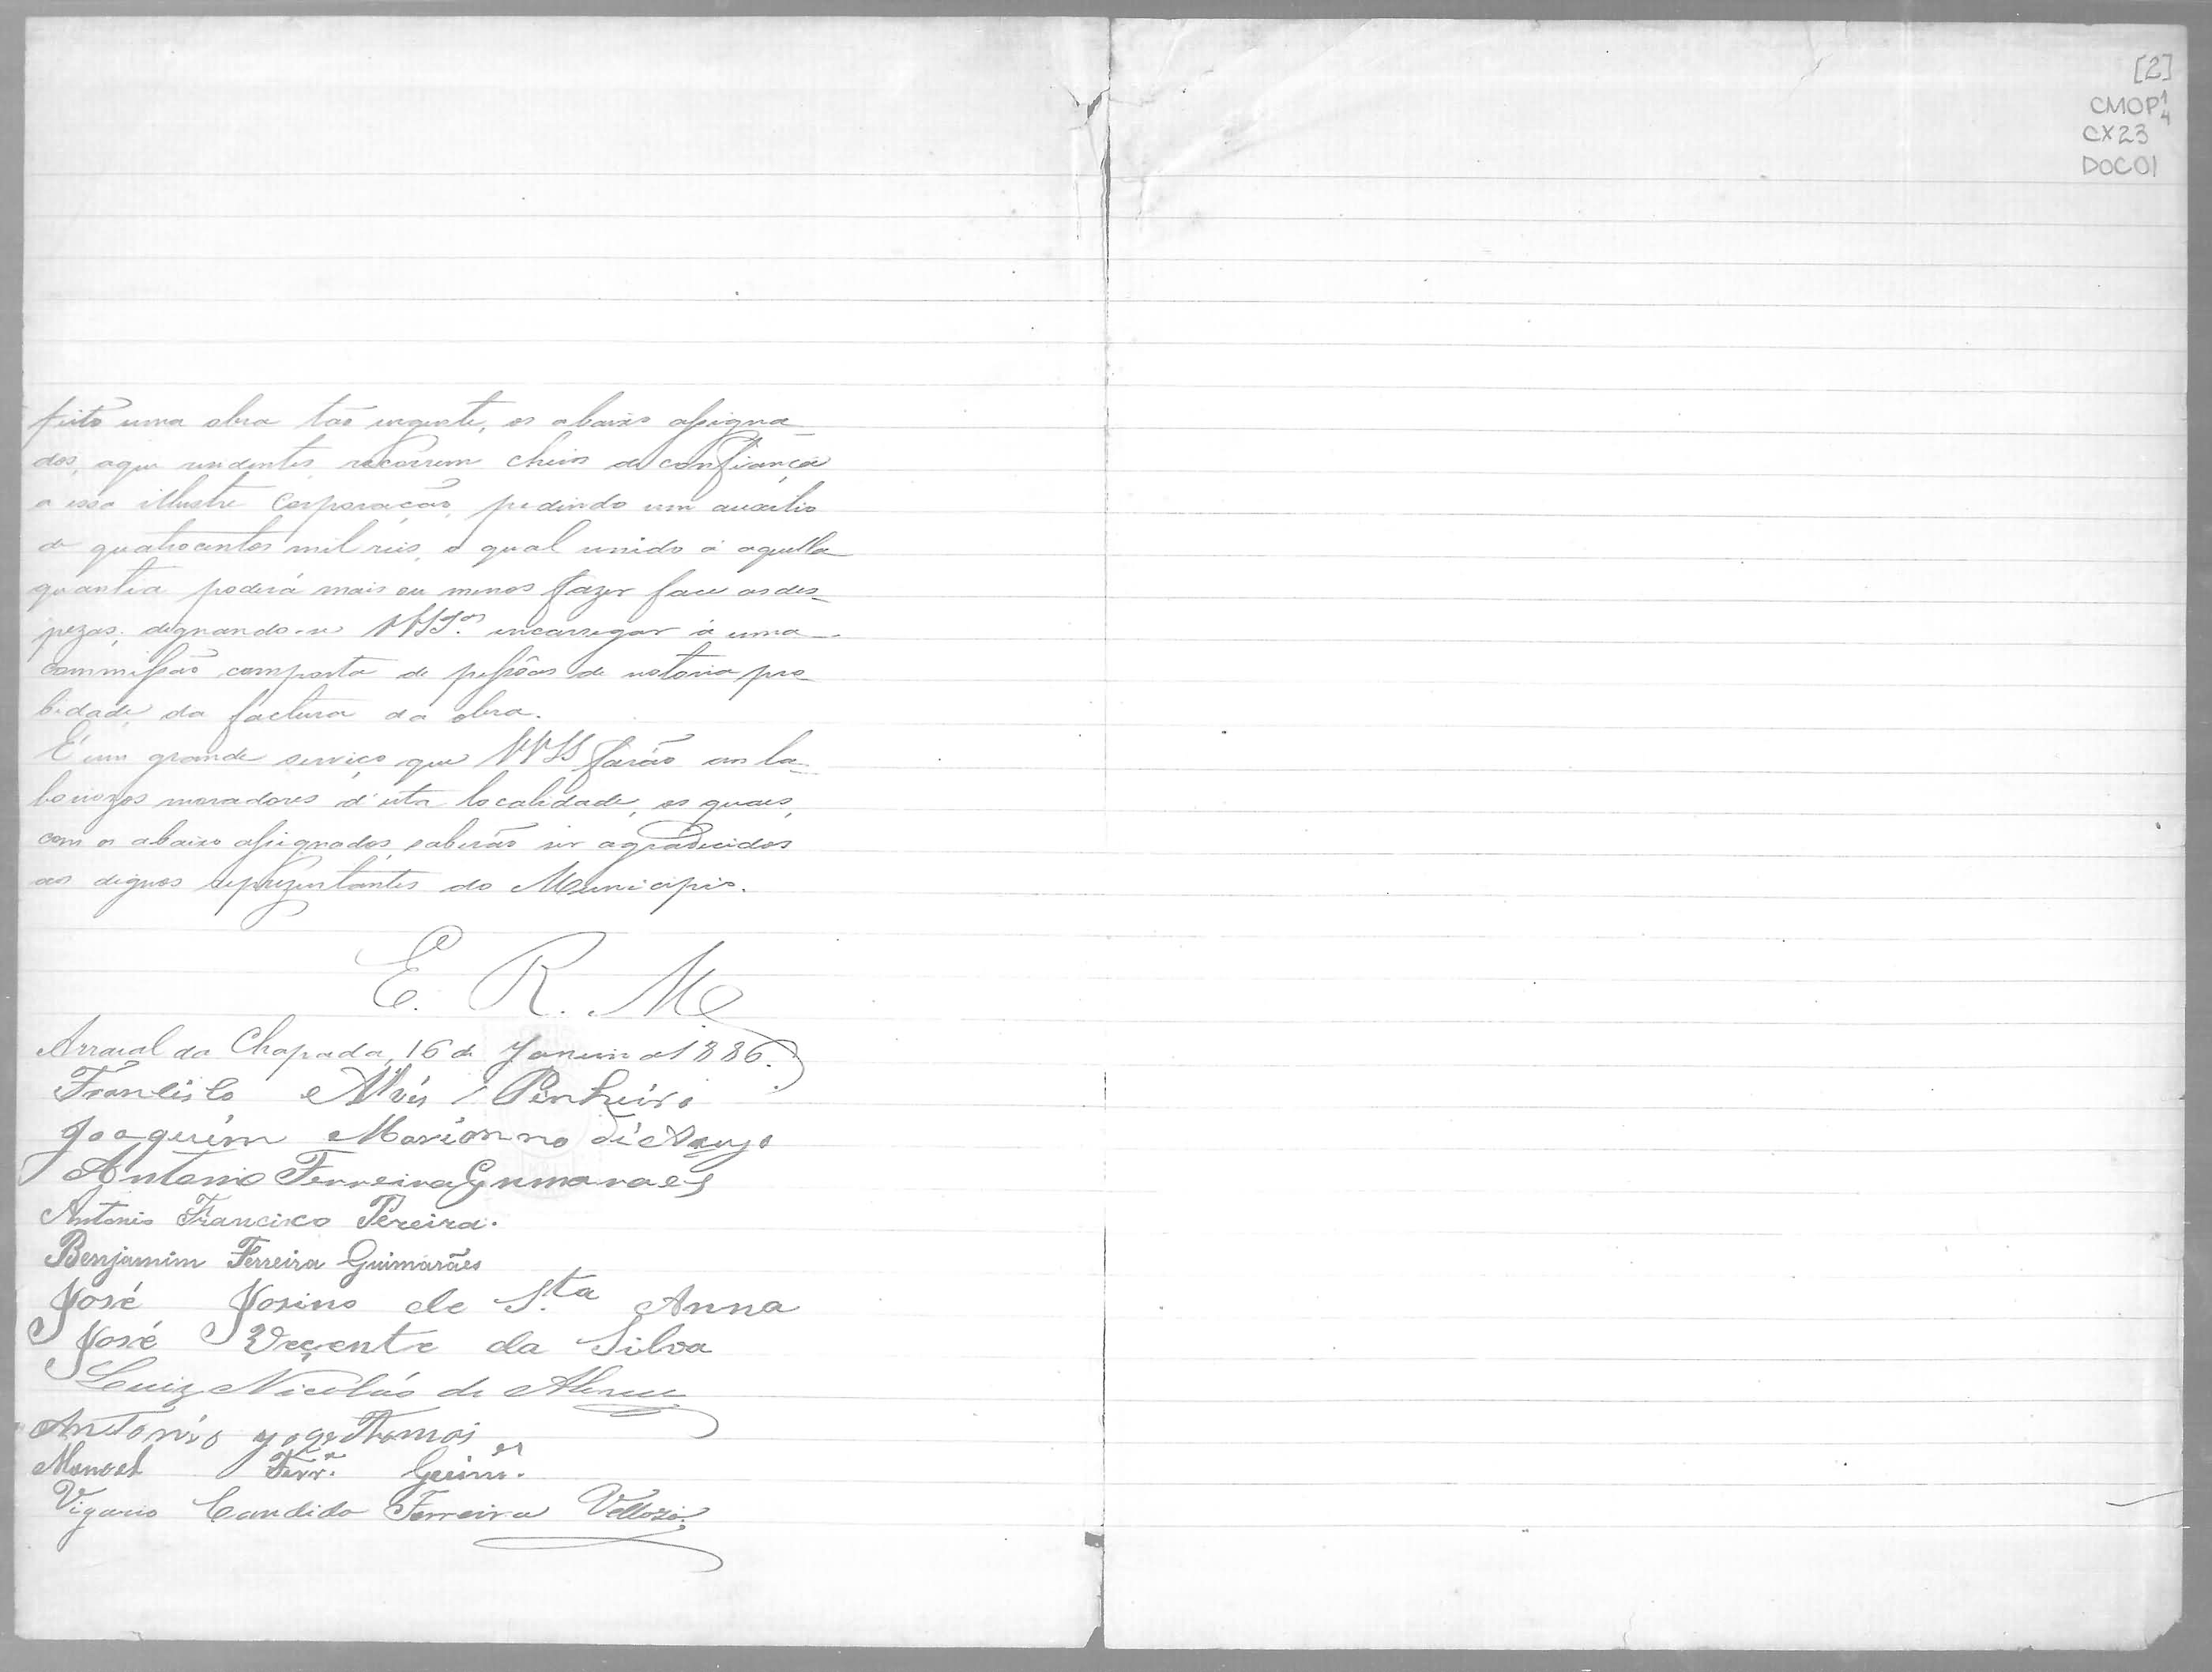 feito uma obra tão urgente, os abaixo assigna-
dos, aqui residentes, recorrem cheios de confiança
a essa illustre Corporação, pedindo um auxilio
de quatrocentos mil reis, o qual unido á aquella
quantia poderá mais ou menos fazer face as des-
pezas; dignando-se VVSS.as encarregar á uma
commissão composta de pessôas de notoria pro-
bidade, da factura da obra.
É um grande serviço que VVSS farão aos la-
boriozos moradores d'esta localidade, os quaes,
com os abaixo assignados, saberão ser agradecidos
aos dignos reprezentantes do Municipio.
E. R. M.
Arraial da Chapada, 16 de Janeiro de 1886.
Francisco Alves Pinheiro
Joaquim Marianno de Araujo
Antonio Ferreira Gumaraes
Antonio Francisco Pereira.
Benjamim Ferreira Guimarães
José Josino de S.ta Anna
José Veçente da Silva
Luiz Nicoláo de Abreu
Antonio Thomas
Manoel Ferr.a Guim.es
Vigario Candido Ferreira Vellozo.
[2]
CMOP 1/4
CX23
DOC01